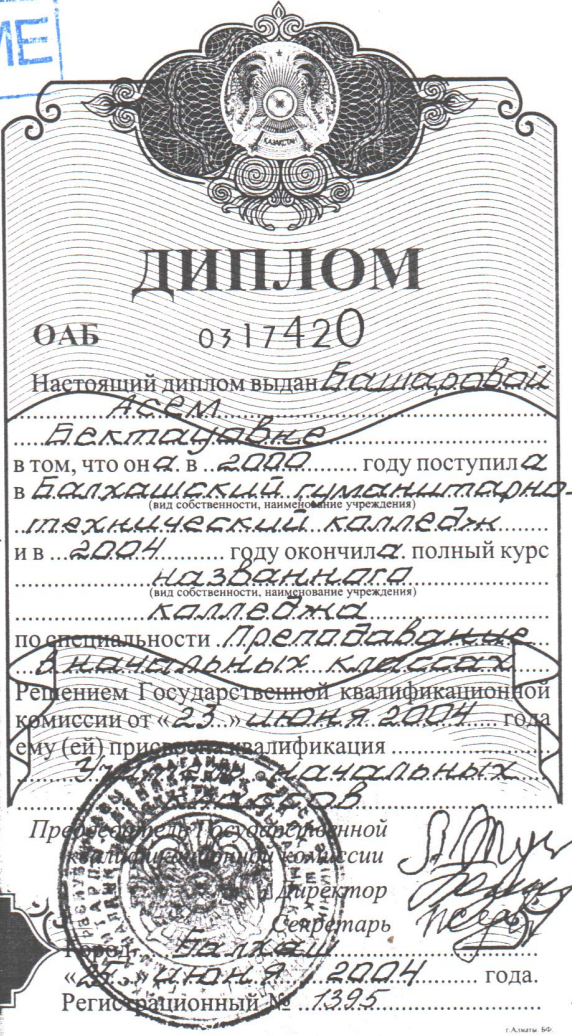 ИЕ
ҚАЗАҚСТАН
ДИПЛОМ
ОАБ 0317420
Настоящий диплом выдан Башаровой
Асем
Бектауовне
в том, что она в 2000 году поступила
в Балхашский гуманитарно-
(вид собственности, наименование учреждения)
технический колледж
и в 2004 году окончила полный курс
названного
(вид собственности, наименование учреждения)
колледжа
по специальности Преподавание
в начальных классах
Решением Государственной квалификационной
комиссии от «23» июня 2004 года
ему (ей) присвоена квалификация
Учитель начальных
классов
Председатель Государственной
квалификационной комиссии
Директор
Секретарь
Город Балхаш
июня 2004 года.
Регистрационный № 1395
г.Алматы БФ.